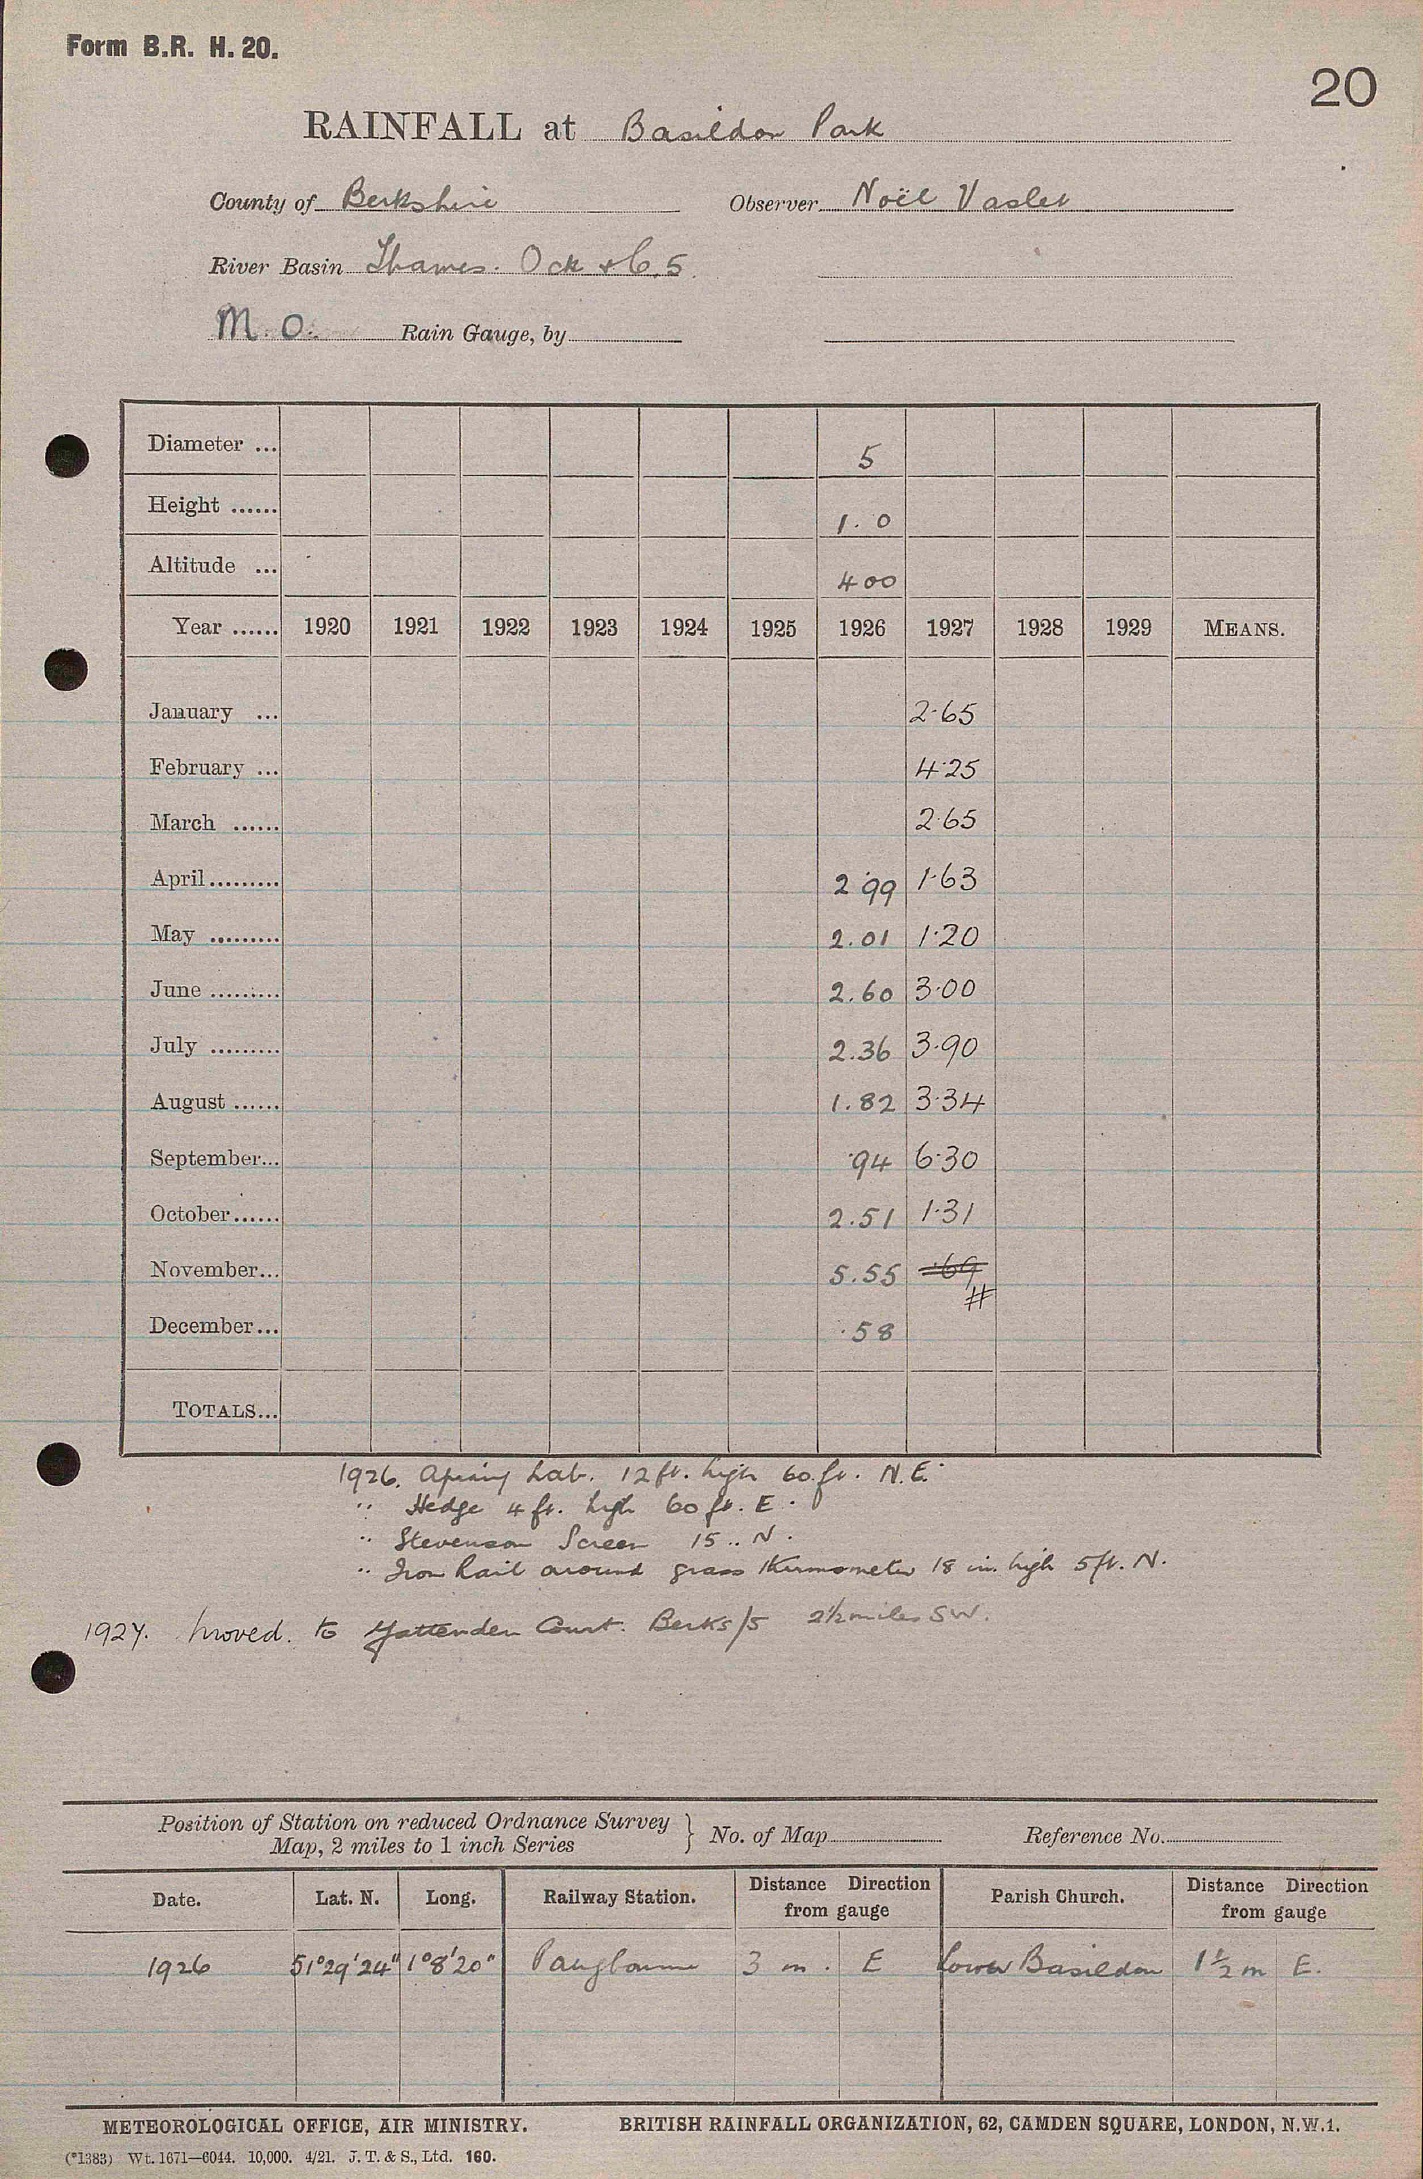 Form B.R. H. 20.
20
RAINFALL at Basildon Park
County of Berkshire Observer Noël Vaslet
River Basin Thames. Ock & C. 5.
M. O. Rain Gauge, by
Diameter ... 5
Height ...... 1. 0
Altitude ... 400
Year ...... 1920 1921 1922 1923 1924 1925 1926 1927 1928 1929 MEANS.
January ... 2·65
February ... 4·25
March ...... 2·65
April ......... 2·99 1·63
May ......... 2.01 1·20
June ......... 2.60 3·00
July ......... 2.36 3·90
August ...... 1.82 3·34
September... ·94 6·30
October...... 2.51 1·31
November... 5.55 ·69
#
December... ·58
TOTALS...
1926. Apiary hut. 12 ft. high 60 ft. N.E.
" Hedge 4 ft. high 60 ft. E.
" Stevenson Screen 15 " N.
" Iron Rail around grass thermometer 18 in. high 5 ft. N.
1927. Moved. to Yattenden Court. Berks/5 2½ miles SW.
Position of Station on reduced Ordnance Survey
Map, 2 miles to 1 inch Series } No. of Map Reference No.
Date. Lat. N. Long. Railway Station. Distance Direction from gauge Parish Church. Distance Direction from gauge
1926 51°29'24" 1°8'20" Pangbourne 3 m. E Lower Basildon 1½ m E.
METEOROLOGICAL OFFICE, AIR MINISTRY. BRITISH RAINFALL ORGANIZATION, 62, CAMDEN SQUARE, LONDON, N.W.1.
(*1383) Wt. 1671—6044. 10,000. 4/21. J. T. & S., Ltd. 160.